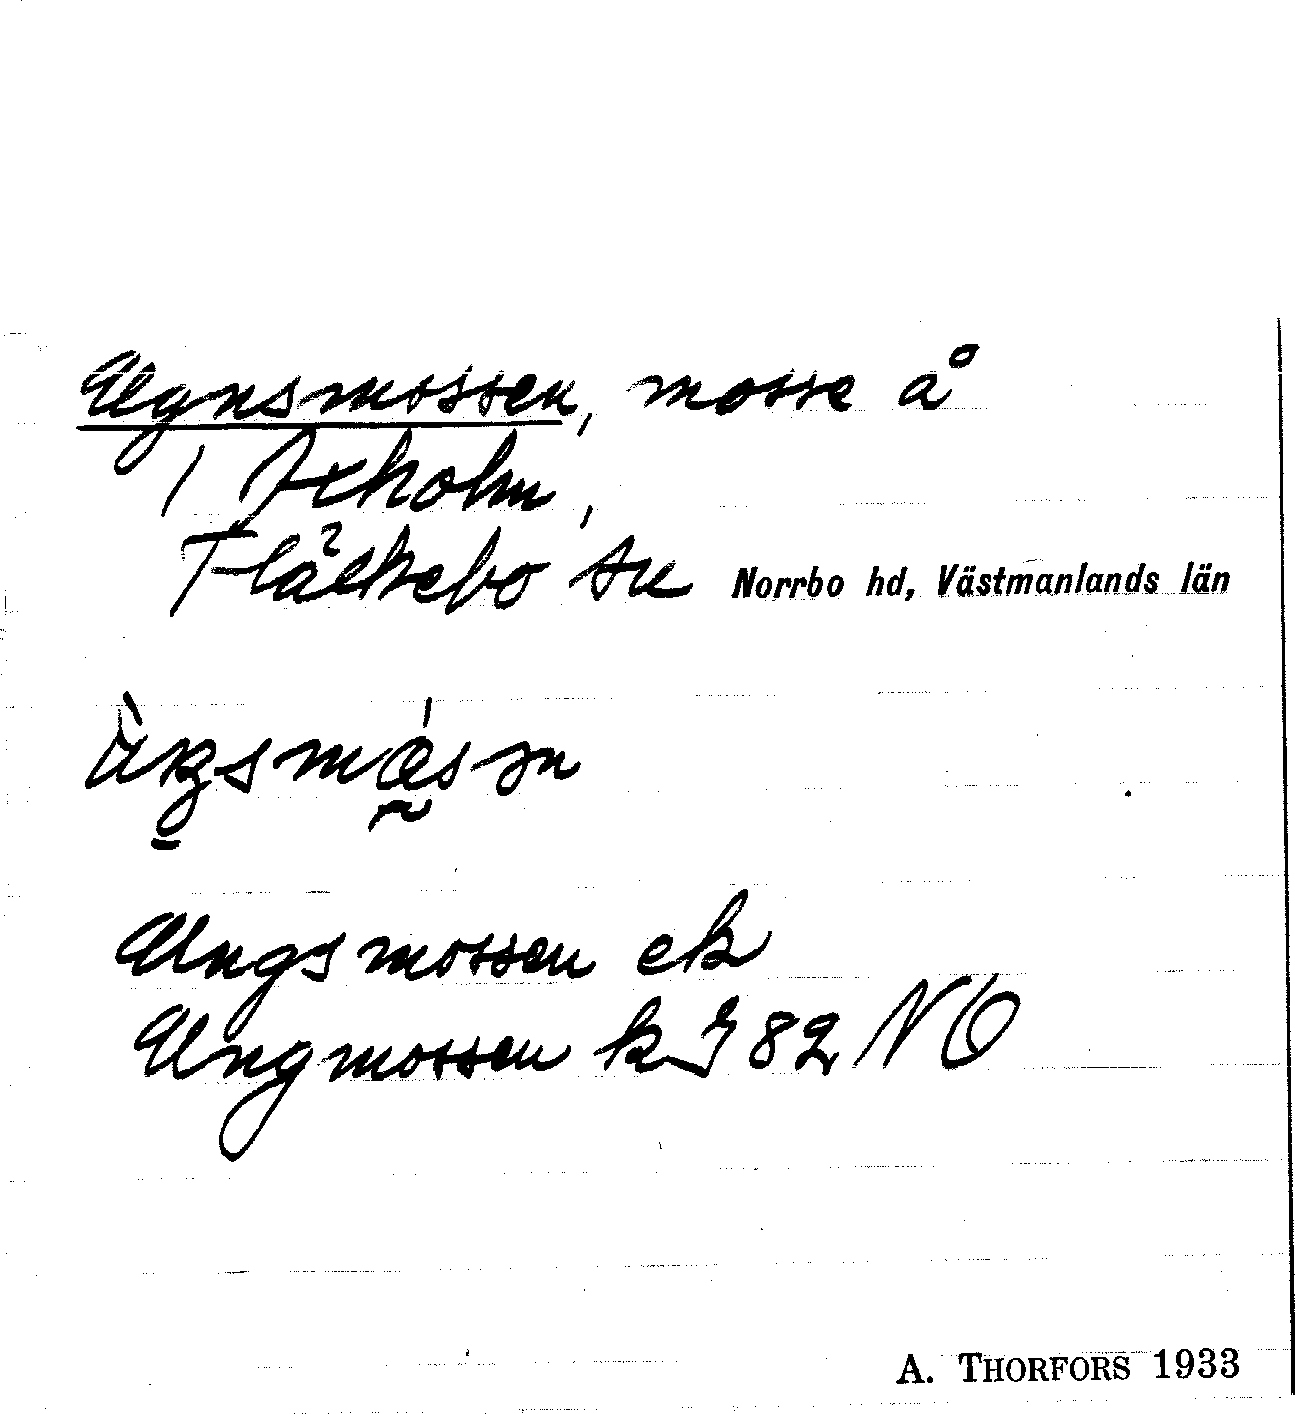 Ugnsmossen, mosse å
1 Axholm,
Fläckebo sn Norrbo hd, Västmanlands län
Ungsmossen ek
Ungmossen k I 82 NO
A. THORFORS 1933